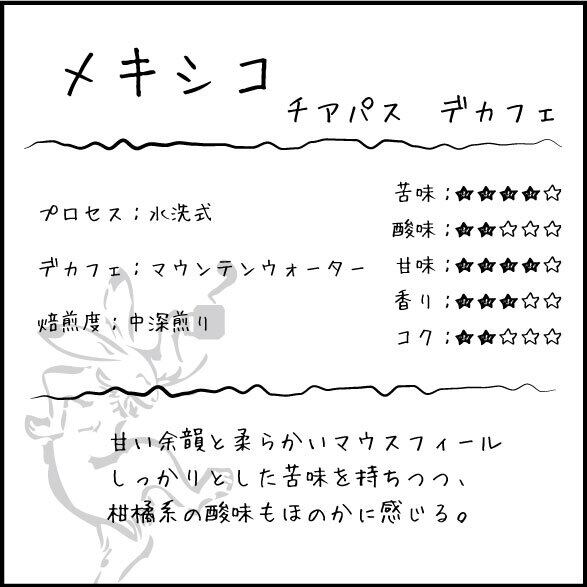 メキシコ
チアパス　デカフェ
プロセス；水洗式
デカフェ；マウンテンウォーター
焙煎度；中深煎り
苦味；★★★★☆
酸味；★★☆☆☆
甘味；★★★★☆
香り；★★★☆☆
コク；★★☆☆☆
甘い余韻と柔らかいマウスフィール
しっかりとした苦味を持ちつつ、
柑橘系の酸味もほのかに感じる。